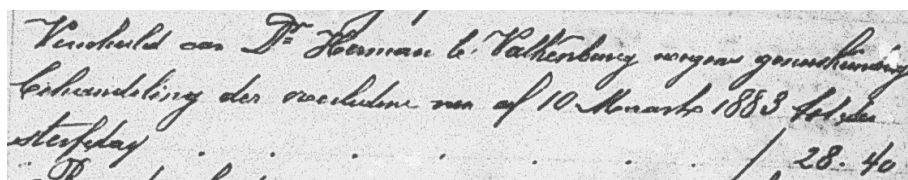 Verschuld aan Dr Herman te Valkenburg wegens geneeskundige
behandeling der overledene van af 10 Maart 1883 tot den
sterfdag . . . . . . . . f 28.40